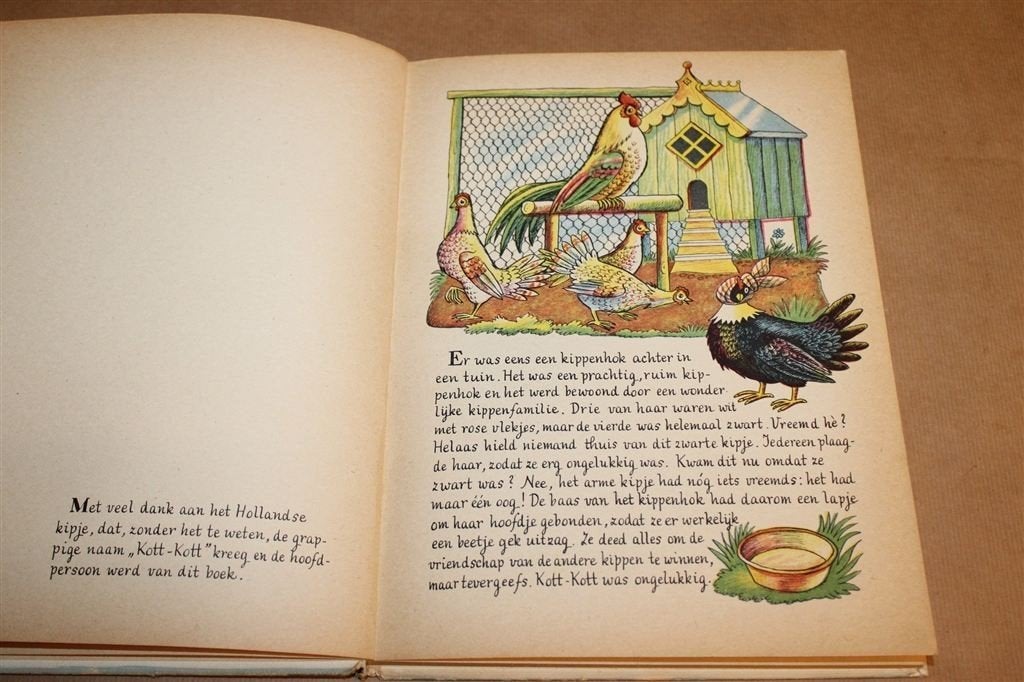 Met veel dank aan het Hollandse
kipje, dat, zonder het te weten, de grap-
pige naam „Kott-Kott” kreeg en de hoofd-
persoon werd van dit boek.
Er was eens een kippenhok achter in
een tuin. Het was een prachtig, ruim kip-
penhok en het werd bewoond door een wonder
lijke kippenfamilie. Drie van haar waren wit
met rose vlekjes, maar de vierde was helemaal zwart. Vreemd hè?
Helaas hield niemand thuis van dit zwarte kipje. Iedereen plaag-
de haar, zodat ze erg ongelukkig was. Kwam dit nu omdat ze
zwart was? Nee, het arme kipje had nóg iets vreemds: het had
maar één oog! De baas van het kippenhok had daarom een lapje
om haar hoofdje gebonden, zodat ze er werkelijk
een beetje gek uitzag. Ze deed alles om de
vriendschap van de andere kippen te winnen,
maar tevergeefs. Kott-Kott was ongelukkig.